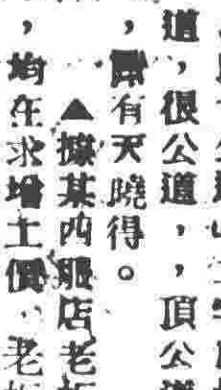 道，很公道，，頂公道
，　有天曉得。
▲據某西服店老
，均在求增土價，老